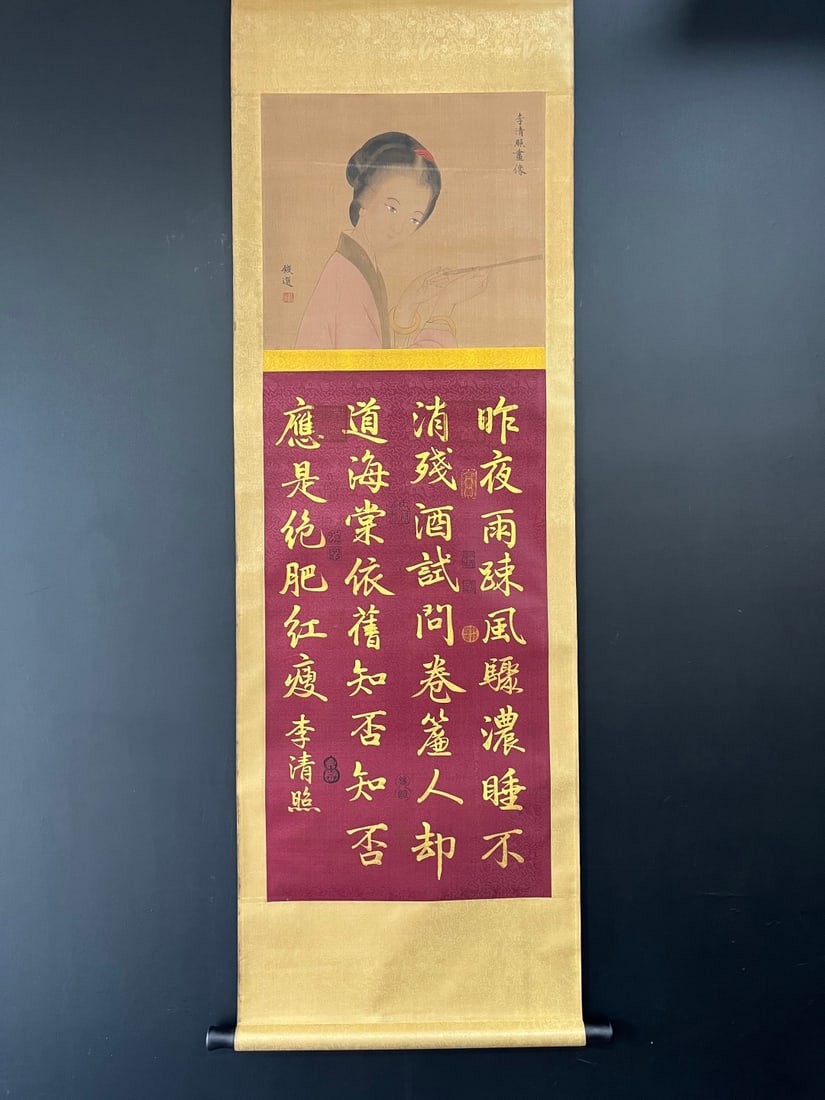 李清照畫像
錢選
昨夜雨疎風驟濃睡不
消殘酒試問卷簾人却
道海棠依舊知否知否
應是绝肥红瘦
李清照